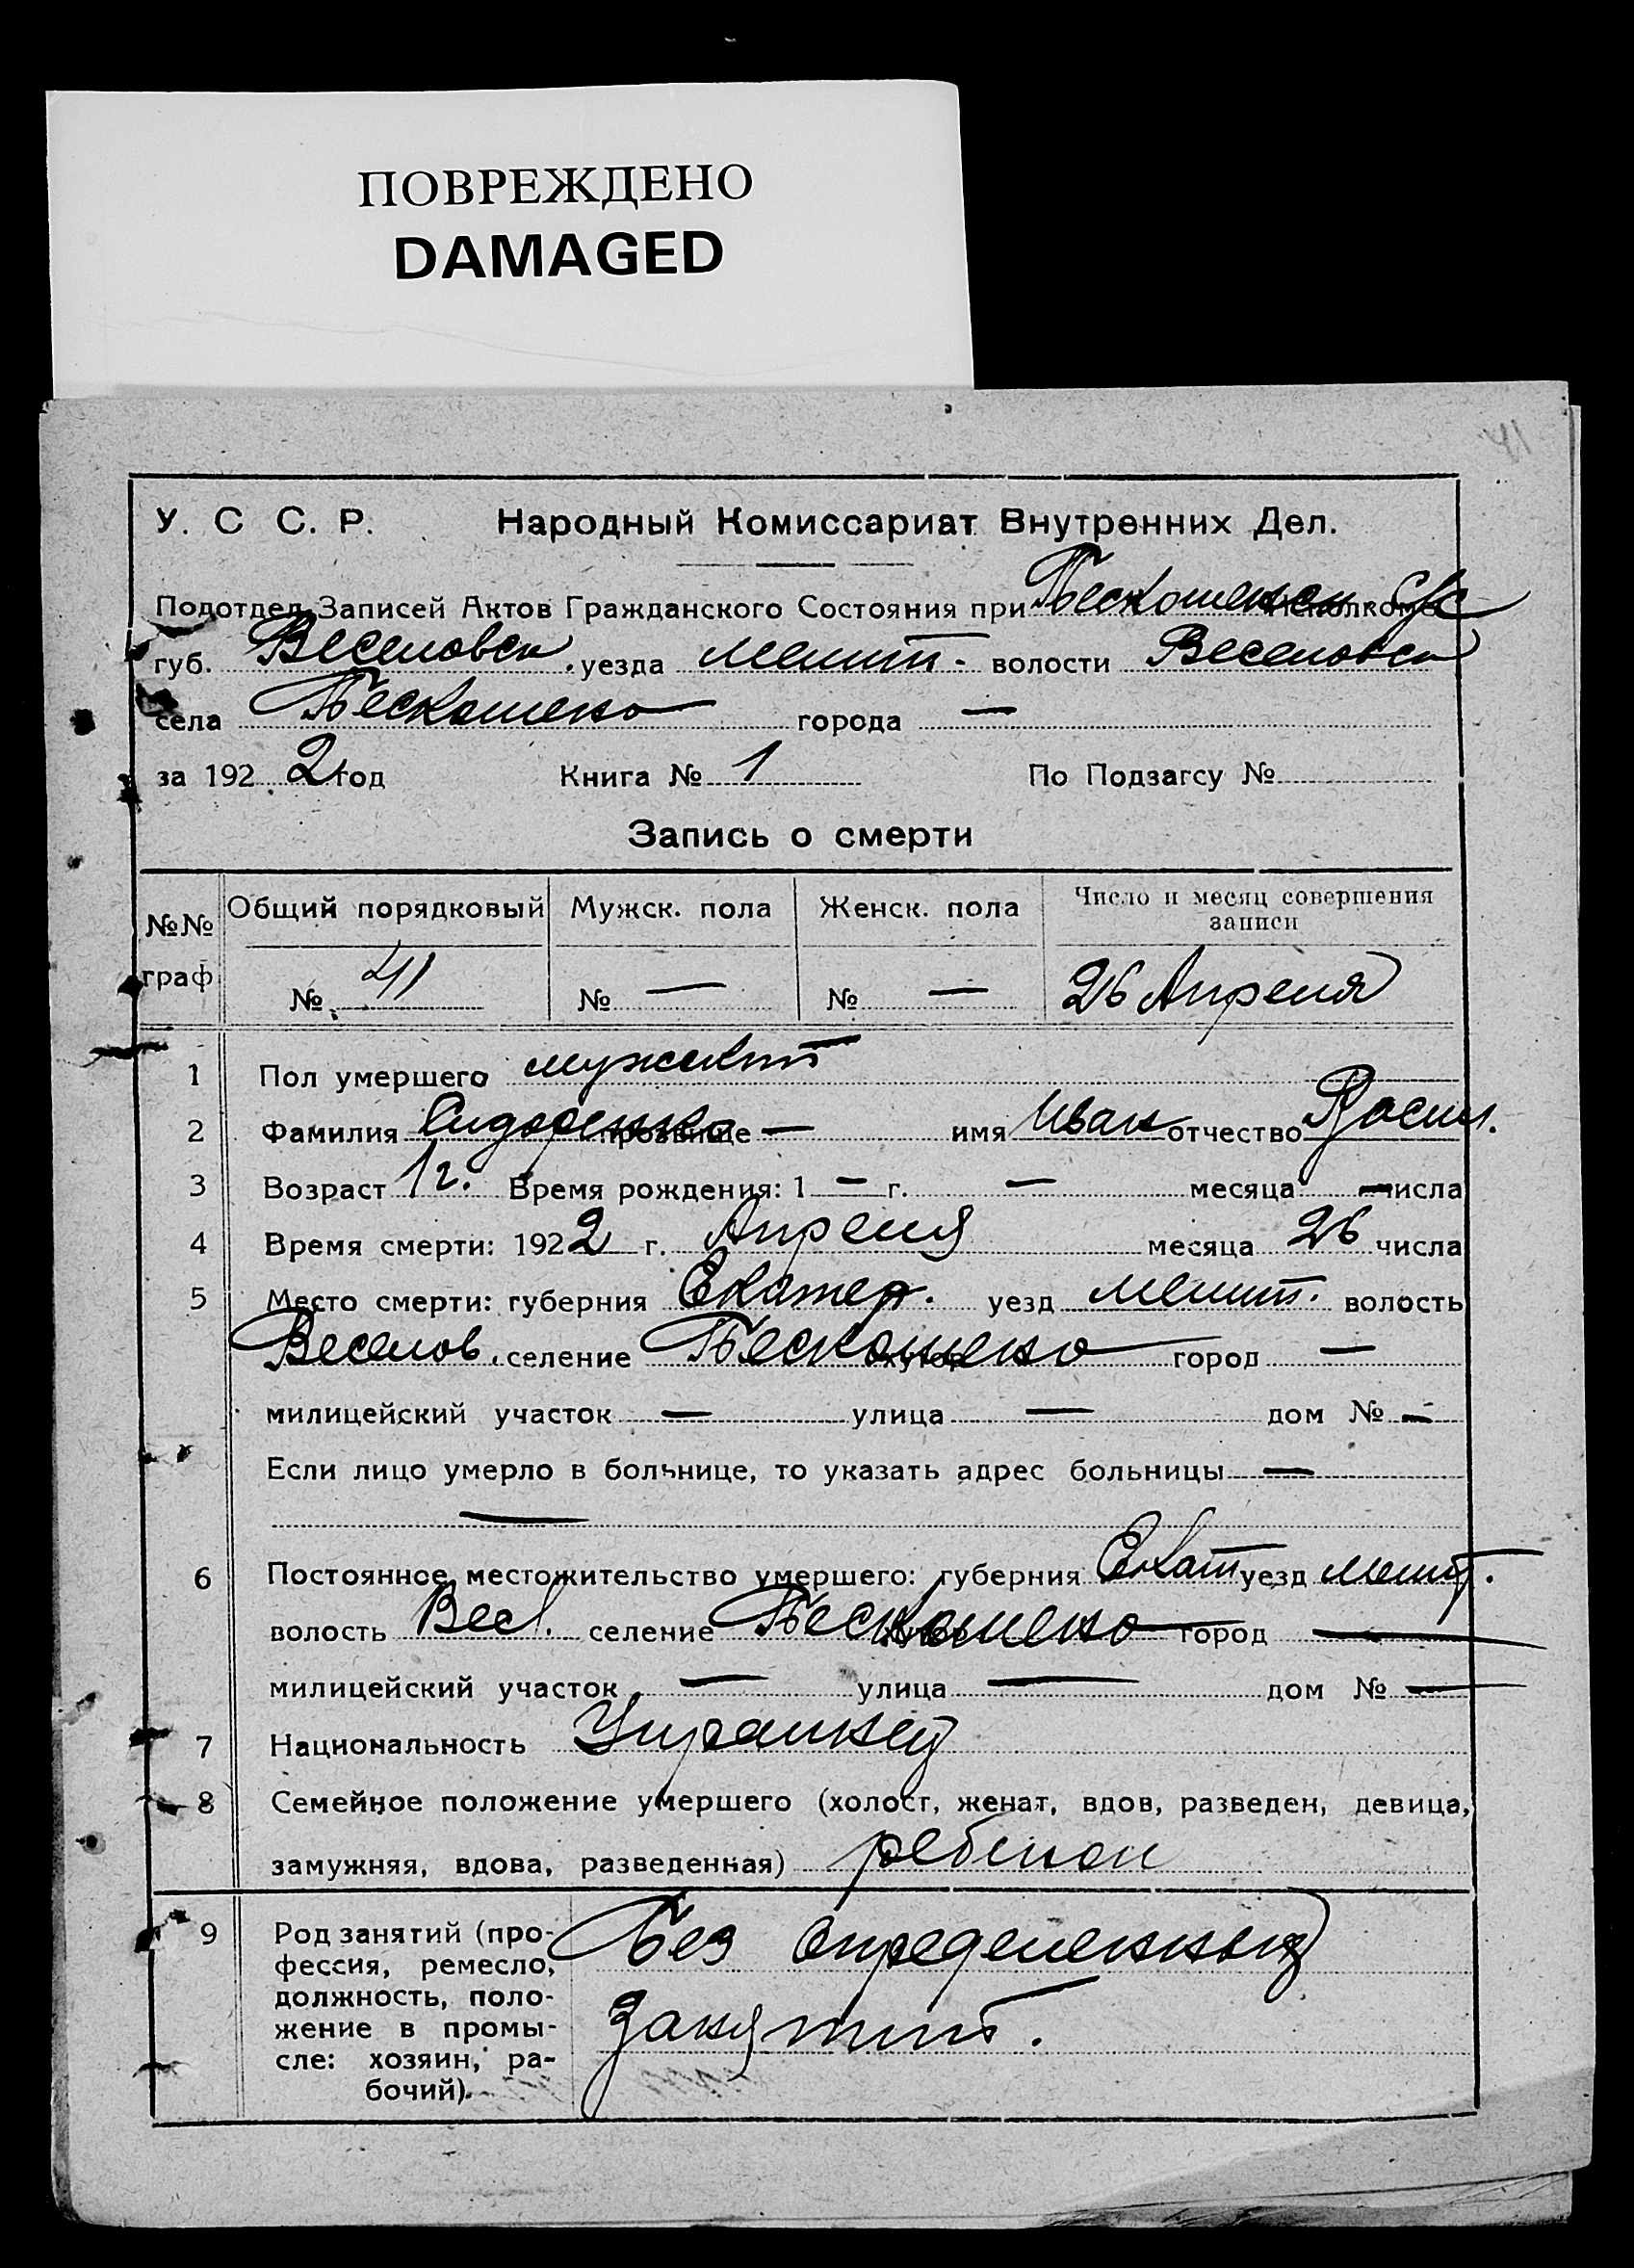 ПОВРЕЖДЕНО
DAMAGED
У. С С. Р. Народный Комиссариат Внутренних Дел.
Подотдел Записей Актов Гражданского Состояния при
губ. Веселовск. уезда Мелит. волости Веселовск
села Бескошено города —
за 1922 год Книга № 1 По Подзагсу №
Запись о смерти
№№ граф Общий порядковый Мужск. пола Женск. пола Число и месяц совершения записи
№ 41 № — № — 26 Апреля
1 Пол умершего мужской
2 Фамилия Сидоренко прозвище — имя Иван отчество Васил.
3 Возраст 1 г. Время рождения: 1 — г. — месяца — числа
4 Время смерти: 1922 г. Апреля месяца 26 числа
5 Место смерти: губерния Екатер. уезд Мелит. волость
Веселов. селение Бескошено хутор город —
милицейский участок — улица — дом № —
Если лицо умерло в больнице, то указать адрес больницы —
—
6 Постоянное местожительство умершего: губерния Екат уезд Мелит.
волость Весл. селение Бескошено город —
милицейский участок — улица — дом № —
7 Национальность Украинец
8 Семейное положение умершего (холост, женат, вдов, разведен, девица,
замужняя, вдова, разведенная) ребенок
9 Род занятий (про-
фессия, ремесло,
должность, поло-
жение в промы-
сле: хозяин, ра-
бочий).
Без определенных
занятий.